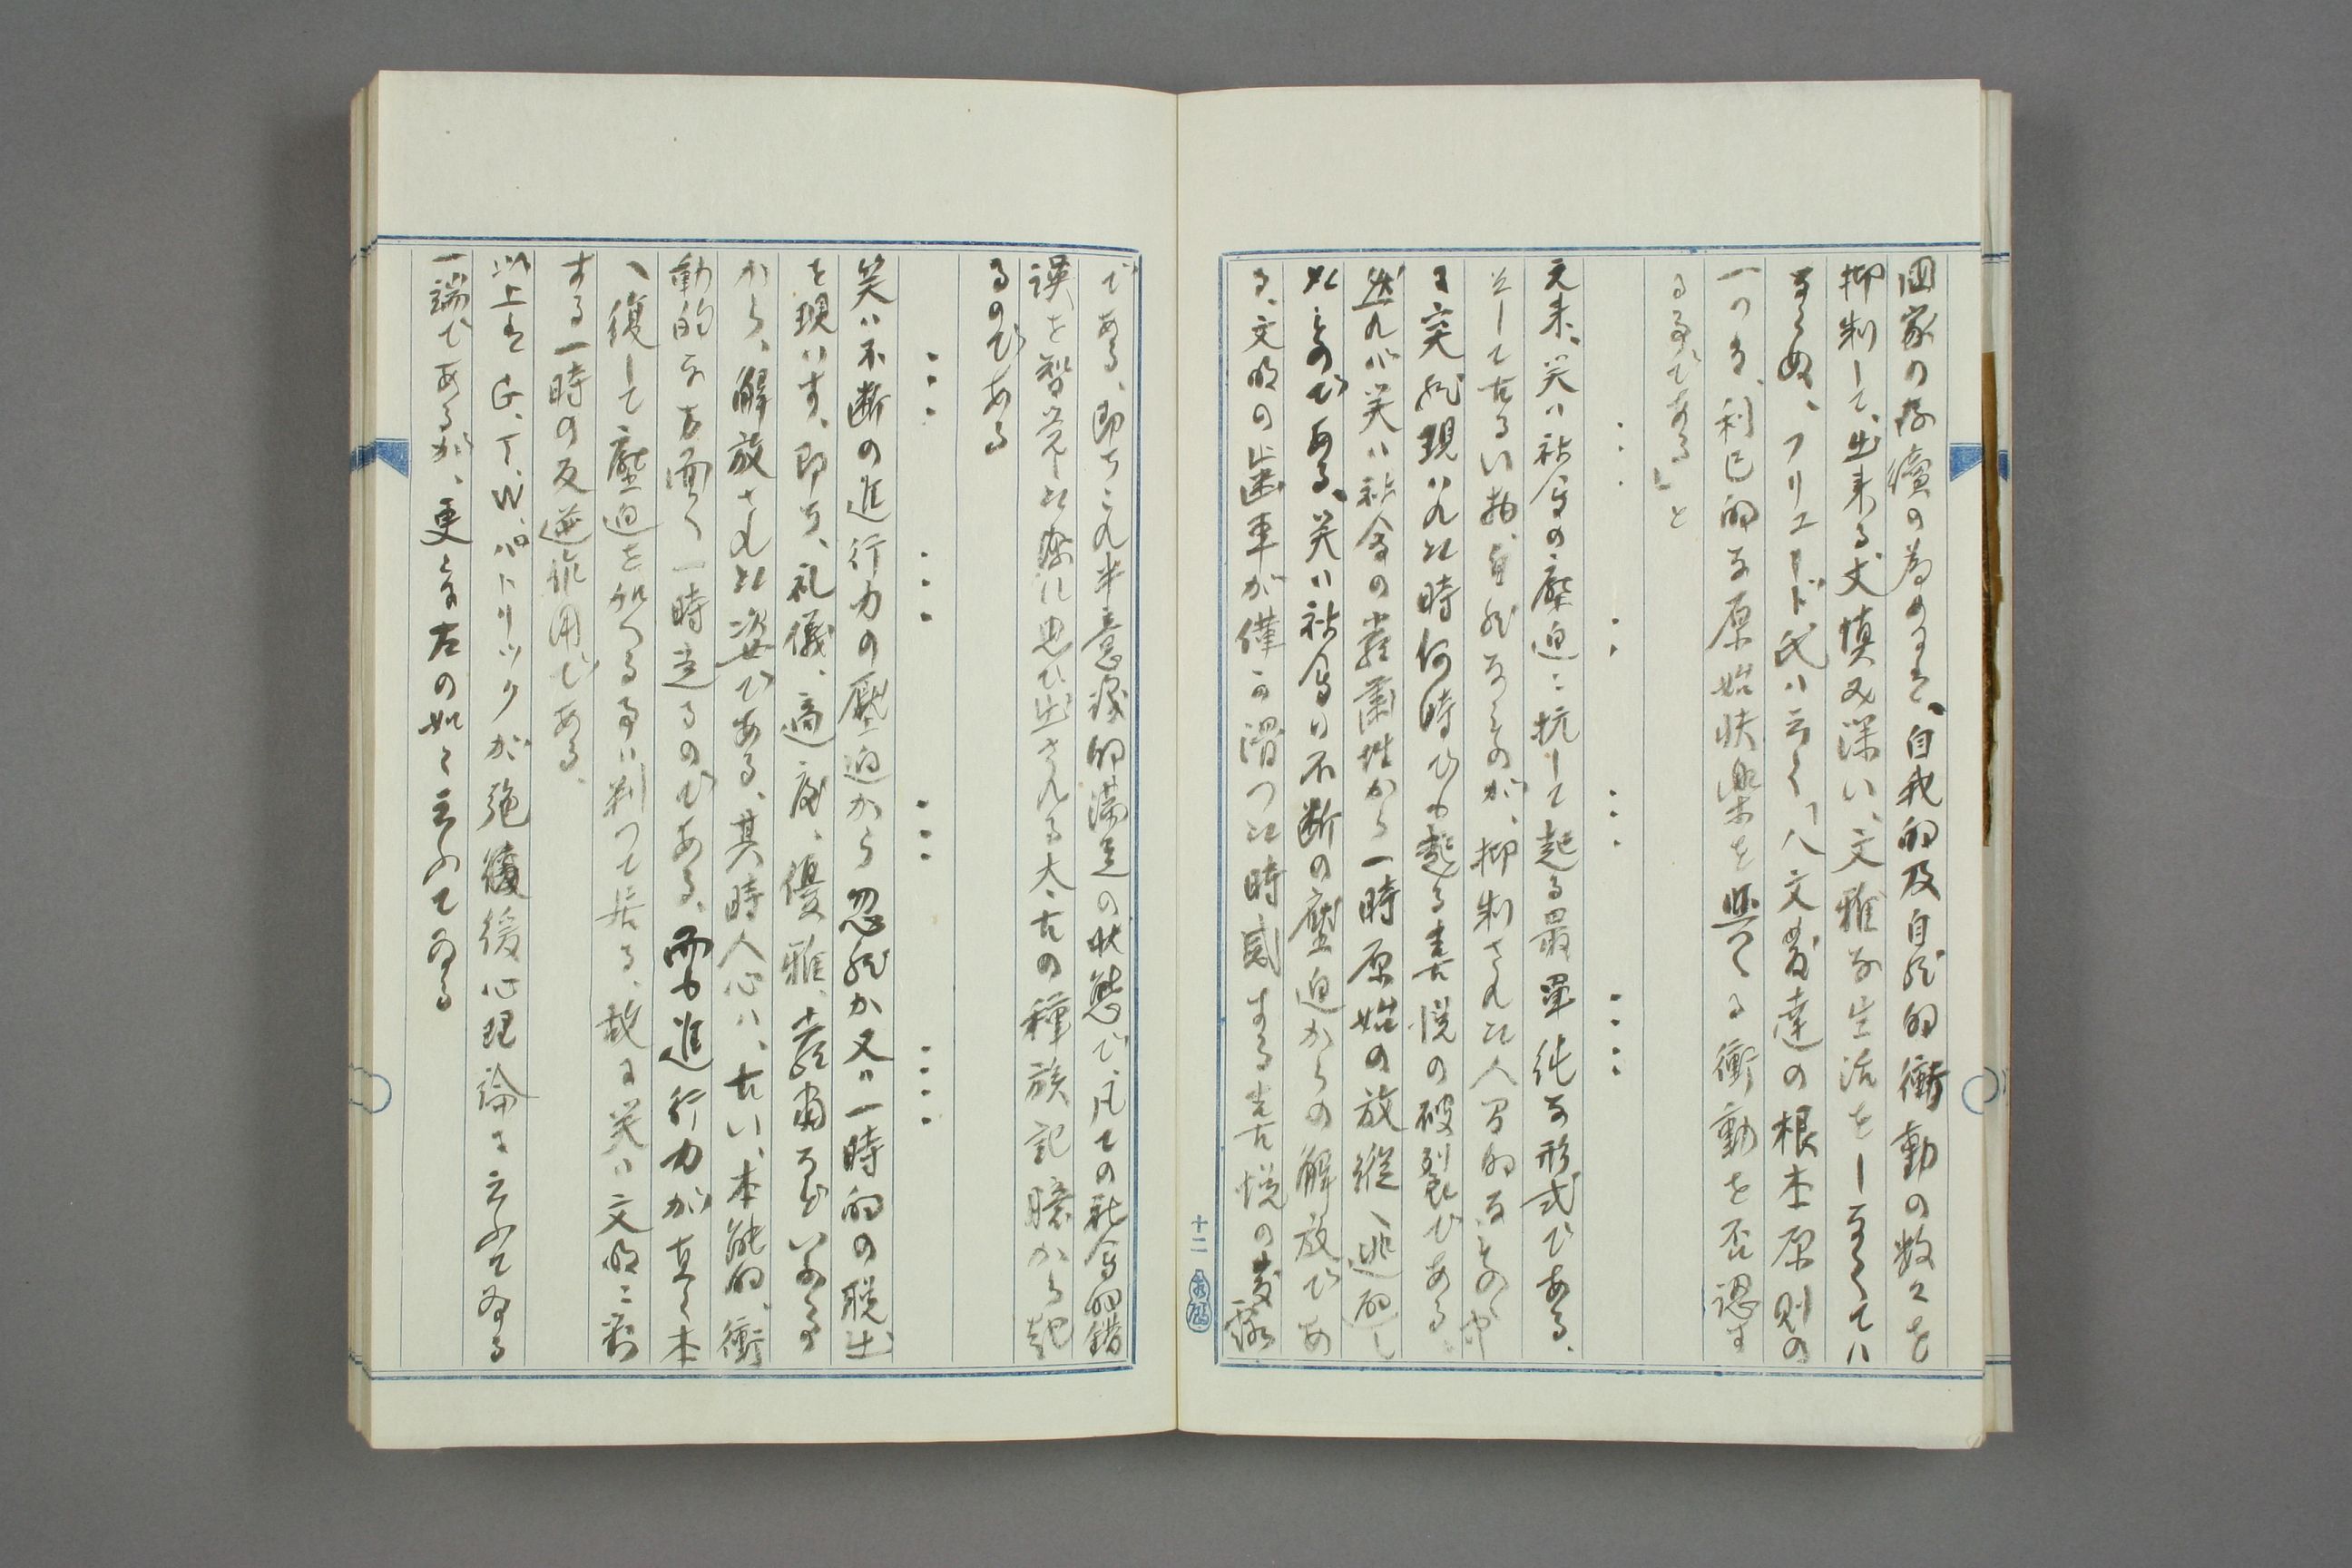 国家の存續の為めには、自我的及自然的衝動の数々を
抑制して、出来る丈慎み深い、文雅な生活をしなくてハ
ならぬ、フリユード氏ハ云く「人文發達の根本原則の
一つは、利己的な原始快楽を與へる衝動を否認す
る事である」と
・・・　・・　・・・　・・・・
元来、笑ハ社会の壓迫ニ抗して起る最単純な形式である、
そして古るい物、自然なものが、抑制された人間的なものゝ中
に突然現ハれた時何時でも起る喜悦の破裂である、
然れバ笑ハ社会の厳粛性から一時原始の放縦へ逃避し
たものである、笑ハ社会の不断の壓迫からの解放であ
る、文明の歯車が僅か滑つた時感する喜悦の發露
十二
である、即ちこれ半意識的満足の状態で、凡ての社会的錯
誤を智覚した際に思ひ出される太古の種族記憶から起
るのである
・・・　・・・　・・・　・・・・
笑ハ不断の進行力の壓迫から忽然か又ハ一時的の脱出
を現ハす、即ち、礼儀、適度、優雅、嚴粛などいふもの
から、解放された姿である、其時人心ハ、古い、本能的、衝
動的な方面へ一時走るのである、而も進行力が直く本
へ復して壓迫を加へる事ハ判つて居る、故に笑ハ文明ニ対
する一時の反逆作用である、
以上は G、T、W、パトリツクが弛緩心理論に云ふてゐる
一端であるが、更に左の如く云ふてゐる